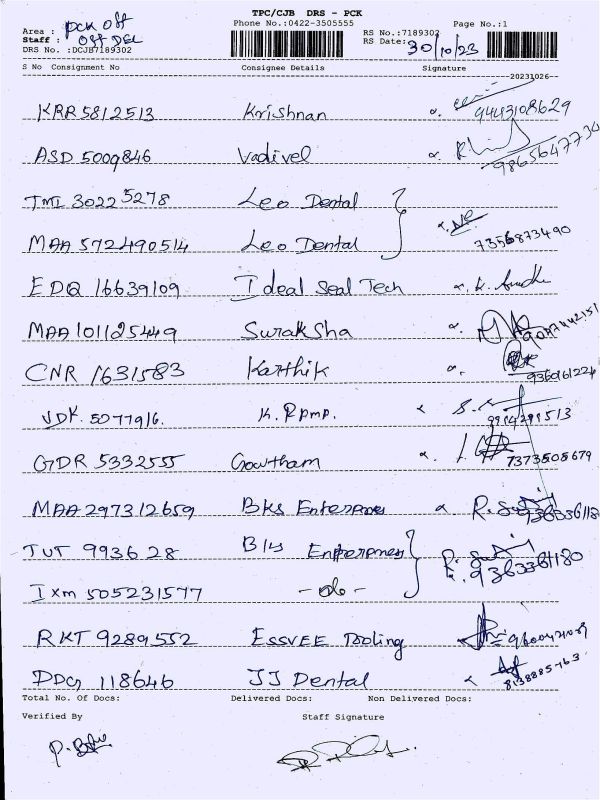 TPC/CJB DRS - PCK
Phone No.:0422-3505555 Page No.:1
Area : PCK Off RS No.:7189302
Staff : Off Del RS Date: 30/10/23
DRS No. :DCJB7189302
S No Consignment No Consignee Details Signature
20231026
KRR 5812513 Krishnan 9443108629
ASD 5009846 Vadivel 9865647730
TMI 30225278 Leo Dental
MAA 572490514 Leo Dental 7356873490
EDQ 16639109 Ideal Seal Tech
MAA 101125449 Suraksha
CNR 1631583 Karthik
VDK 5077916. K.P.pmp.
GDR 5332555 Gowtham 7373508679
MAA 297312659 BKS Enterprises
TUT 993628 Bks Enterprises 9363361180
Ixm 505231577 -do-
RKT 9289552 ESSVEE Tooling
DDG 118646 JJ Dental 8138885763
Total No. Of Docs: Delivered Docs: Non Delivered Docs:
Verified By Staff Signature